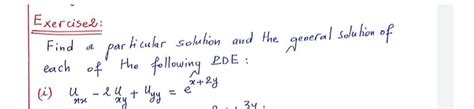 Exercise2:
Find a particular solution and the general solution of
each of the following PDE:
(i) u_xx - 2u_xy + u_yy = e^(x+2y)
3y